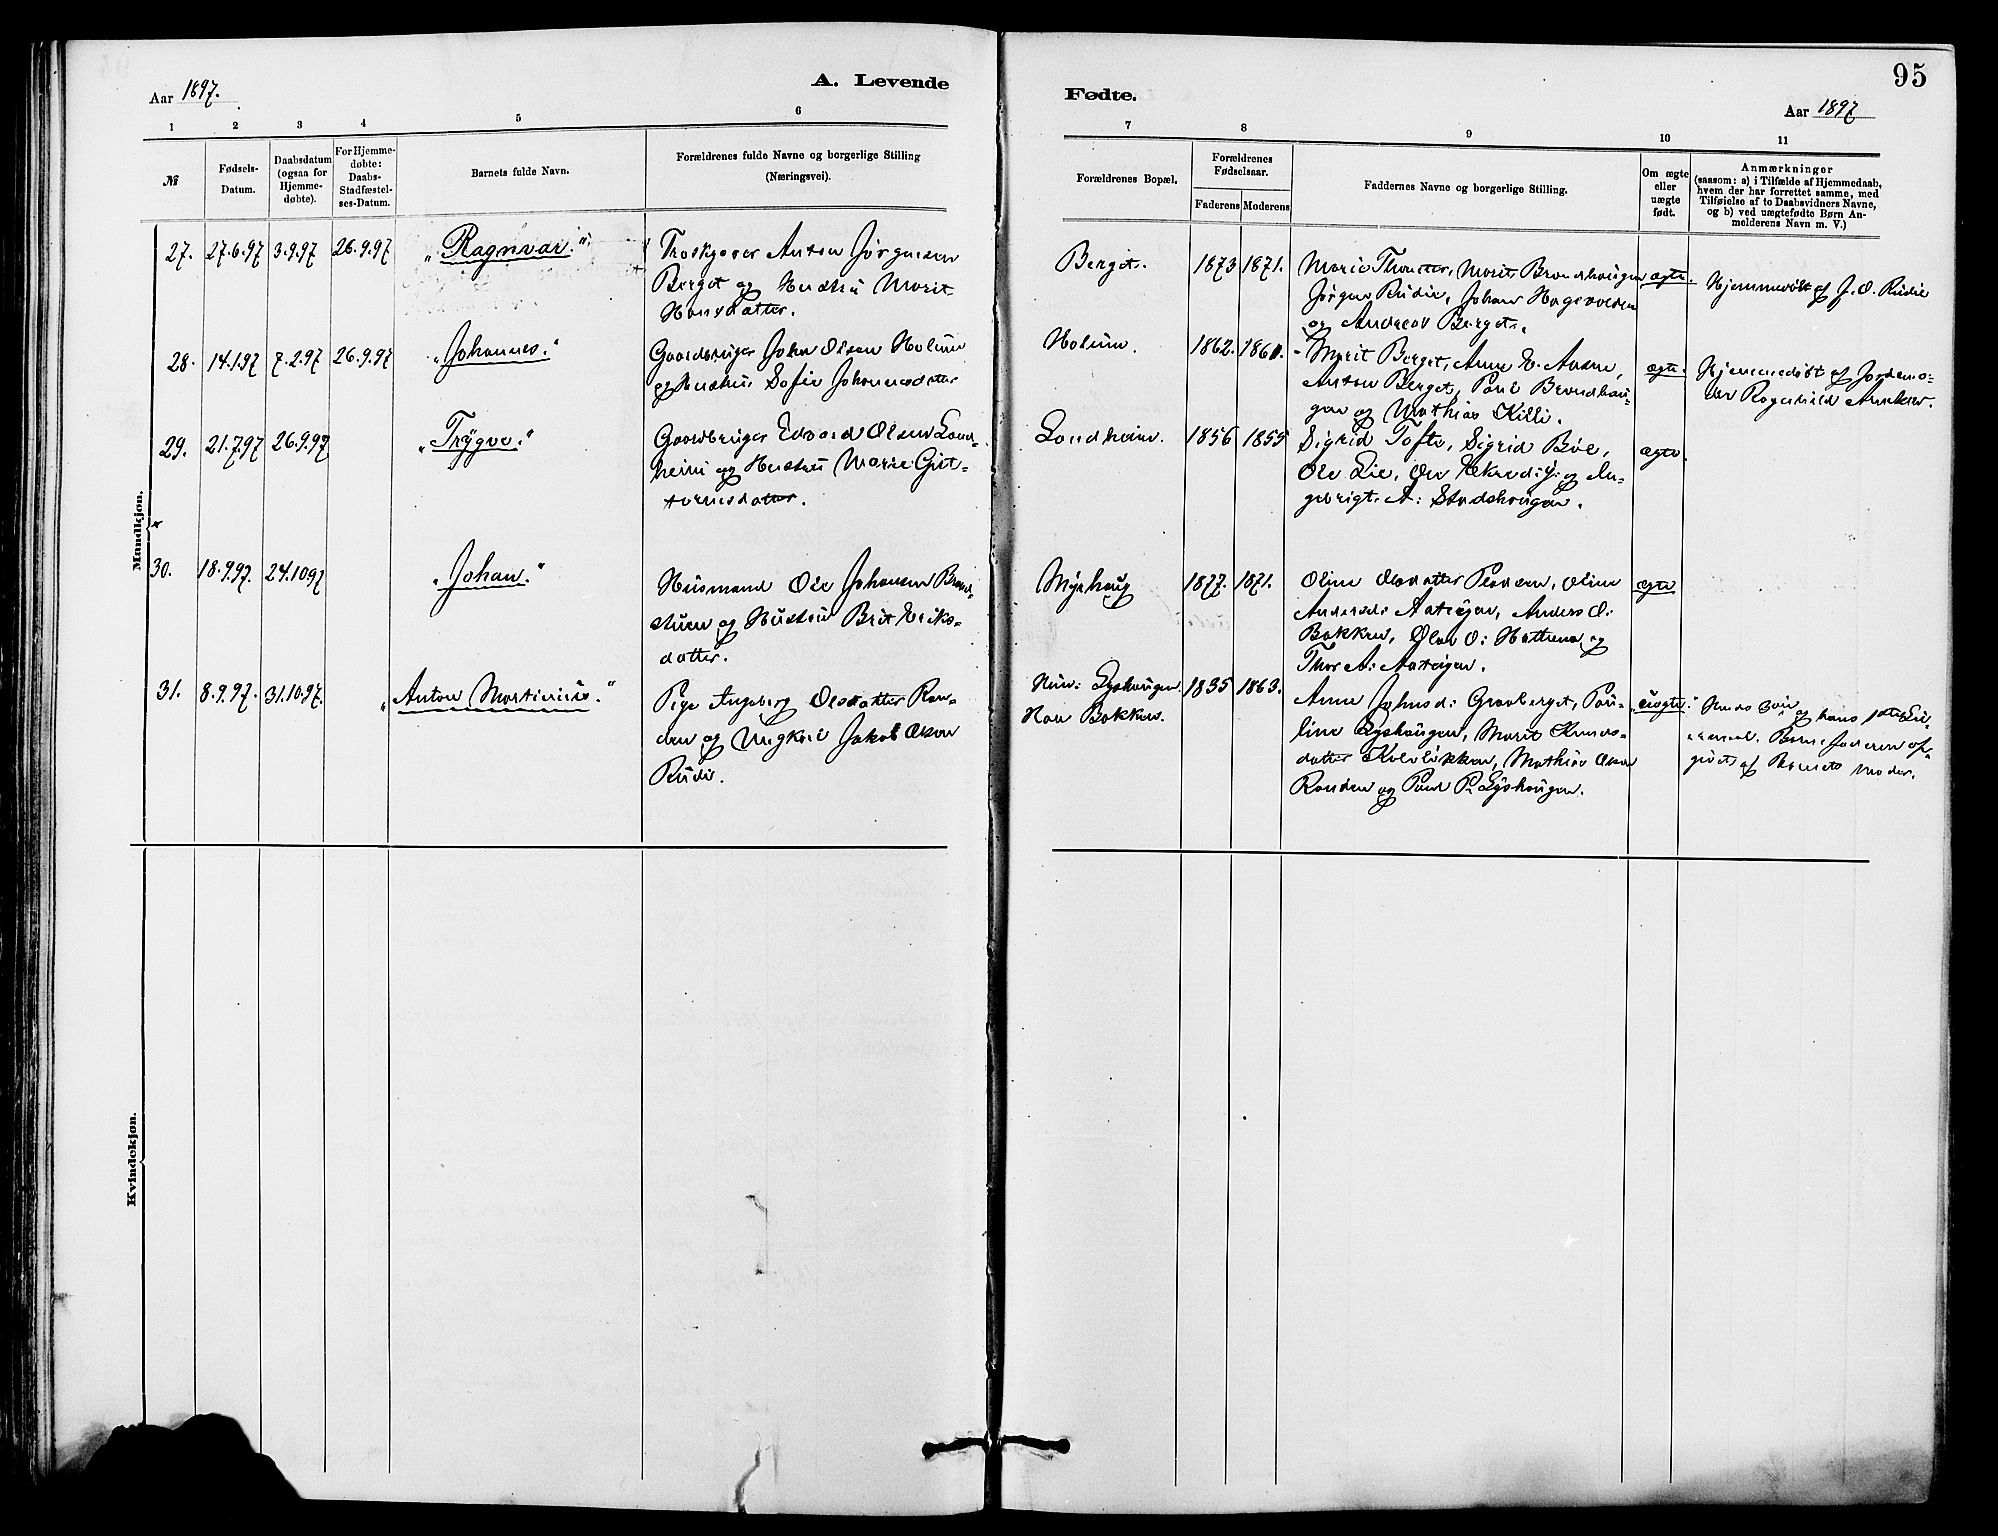 95
Aar 1897.
A. Levende
Fødte.
Aar 1897
1 2 3 4 5 6
7 8 9 10 11
№
Fødsels-
Datum.
Daabsdatum
(ogsaa for
Hjemme-
døbte).
For Hjemme-
døbte:
Daabs-
Stadfæstel-
ses-Datum.
Barnets fulde Navn.
Forældrenes fulde Navne og borgerlige Stilling
(Næringsvei).
Forældrenes Bopæl.
Forældrenes
Fødselsaar.
Faderens Moderens
Faddernes Navne og borgerlige Stilling.
Om ægte
eller
uægte
født.
Anmærkninger
(saasom: a) i Tilfælde af Hjemmedaab,
hvem der har forrettet samme, med
Tilføielse af to Daabsvidners Navne,
og b) ved uægtefødte Børn An-
melderens Navn m. V.)
Mandkjøn.
27. 27.6.97 3.9.97 26.9.97 "Ragnvar."
Anton Jørgensen
Berget og Hustru Marit
Hansdatter.
Berget. 1873 1871.
Jørgen Rudie, Johan
og Andreas Berget.
ægte.
Hjemmedøbt af J. O. Rudie
28. 14.1.97 7.2.97 26.9.97 "Johannes."
Gaardbruger John Olsen Holum
og Hustru Sofie Johannesdatter
Holum. 1862. 1861.
Marit Berget, Anne E.
Anton Berget, Paul Brændhau-
gen og Mathias Killi.
ægte.
Hjemmedøbt af Jordemo-
der Ragnhild
29. 21.7.97 26.9.97 "Trygve."
Gaardbruger Edvard Olsen Land-
heim og Hustru Marie Gut-
tormsdatter.
Landheim. 1856 1855
Sigrid Tofte, Sigrid Bøe,
Ole Lie, Ole Ekre d.y. og In-
gebrigt A: Stadshaugen.
ægte.
30. 18.9.97. 24.10 97 "Johan."
Husmand Ole Johansen
stuen og Hustru Brit Eriks-
datter.
Myrhaug 1877. 1871.
Oline Olsdatter Pladsen, Oline
Andersd: Aateigen, Anders O:
Bakken, Olav O:
og
Thor A: Aateigen.
ægte
31. 8.9.97. 31.10.97. "Anton Martinius."
Pige Ingeborg Olsdatter Ran-
den og Ungkarl Jakob Olsen
Rudi.
Hun: Lyshaugen
Han Bakken.
1835 1863.
Anne Johnsd: Graaberget, Pau-
line Lyshaugen, Marit Knuds-
datter Kololøkken, Mathias Olsen
Randen og Paul P. Lyshaugen.
"uægte"
og hans 1ste Lei-
ermaal. Barnefaderen op-
givet af Barnets Moder.
Kvindekjøn.